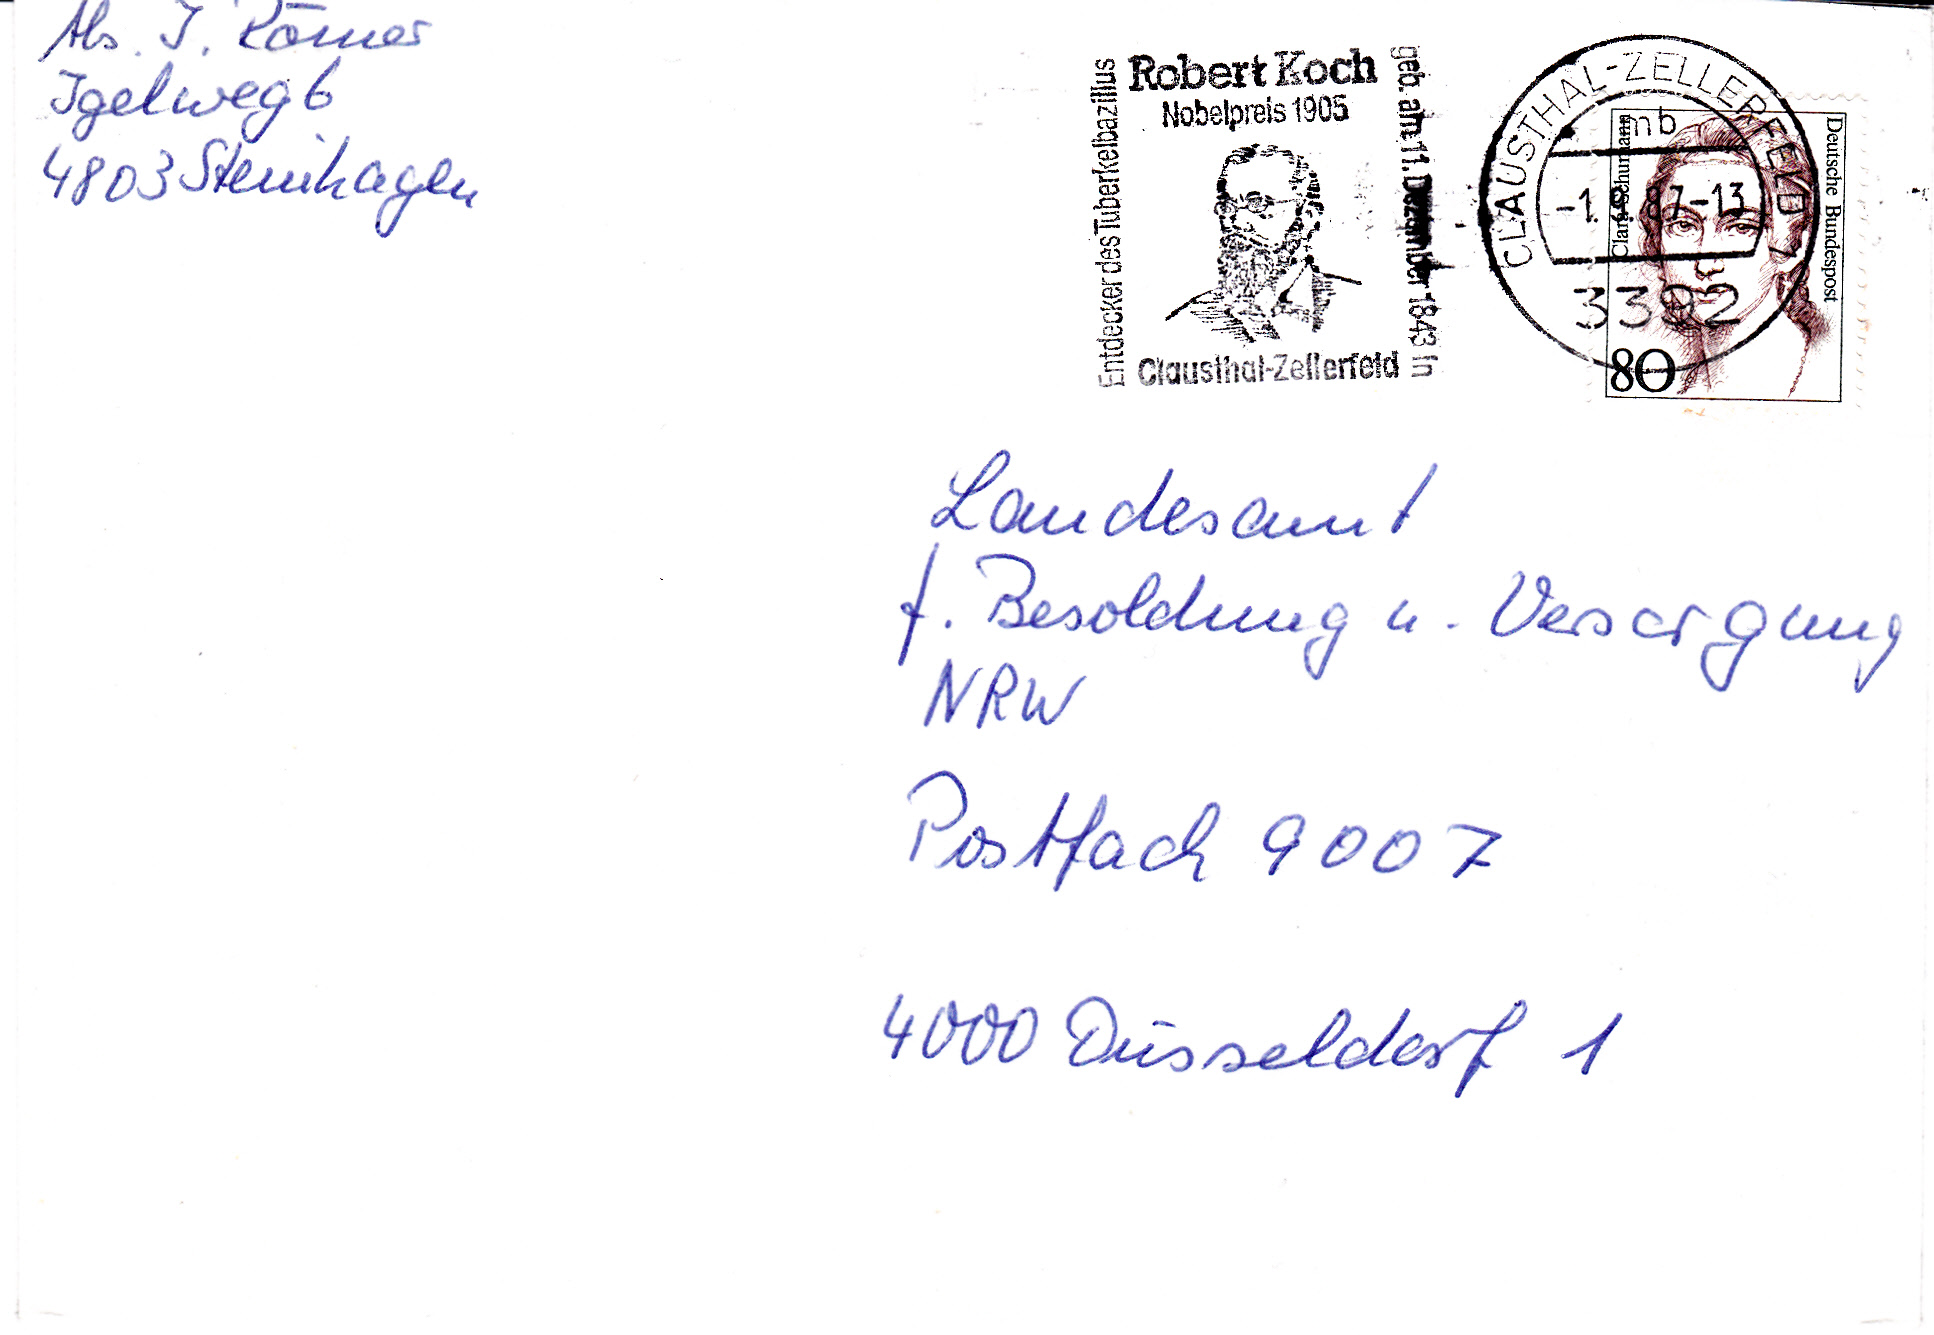 Abs. J. Römer
Igelweg 6
4803 Steinhagen
Entdecker des Tuberkelbazillus
Robert Koch
Nobelpreis 1905
geb. am 11. Dezember 1843 in
Clausthal-Zellerfeld
CLAUSTHAL-ZELLERFELD 1
mb
-1.9.87-13
3392
Clara Schumann
Deutsche Bundespost
80
Landesamt
f. Besoldung u. Versorgung
NRW
Postfach 9007
4000 Düsseldorf 1